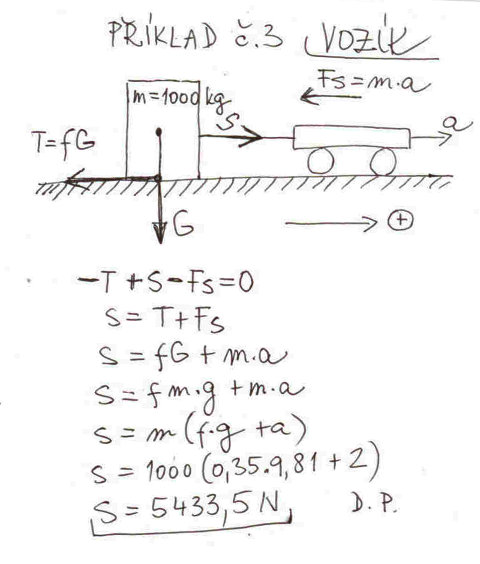 PŘÍKLAD č.3 VOZÍK
Fs=m.a
m=1000kg
S
a
T=fG
G
+
-T+S-Fs=0
S=T+Fs
S=fG+m.a
S=fm.g+m.a
S=m(f.g+a)
S=1000(0,35.9,81+2)
S=5433,5N
D.P.